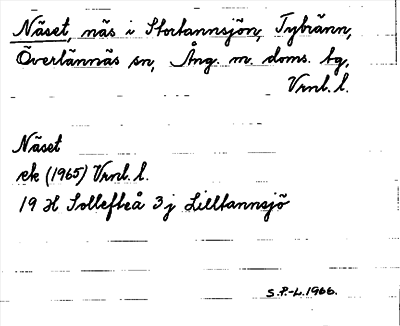 Näset, näs i Stortannsjön, Tybränn,
Överlännäs sn, Ång. m. doms. bg,
Vrnl. l.
Näset
ek (1965) Vrnl. l.
19 H Sollefteå 3 j Lilltannsjö
S.P.-L. 1966.